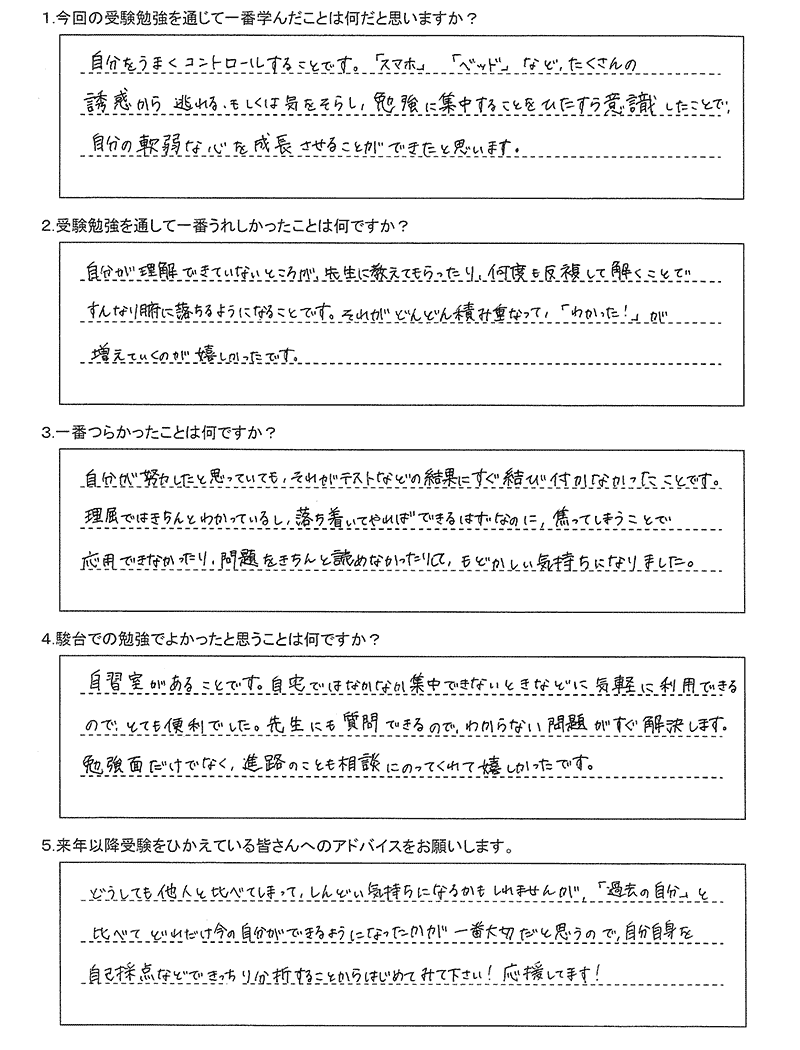 1.今回の受験勉強を通じて一番学んだことは何だと思いますか？
自分をうまくコントロールすることです。「スマホ」「ベッド」など、たくさんの
誘惑から逃れる、もしくは気をそらし、勉強に集中することをひたすら意識したことで、
自分の軟弱な心を成長させることができたと思います。
2.受験勉強を通して一番うれしかったことは何ですか？
自分が理解できていないところが、先生に教えてもらったり、何度も反複して解くことで
すんなり腑に落ちるようになることです。それがどんどん積み重なって、「わかった！」が
増えていくのが嬉しかったです。
3.一番つらかったことは何ですか？
自分が努力したと思っていても、それがテストなどの結果にすぐ結び付かなかったことです。
理屈ではきちんとわかっているし、落ち着いてやればできるはずなのに、焦ってしまうことで
応用できなかったり、問題をきちんと読めなかったりして、もどかしい気持ちになりました。
4.駿台での勉強でよかったと思うことは何ですか？
自習室があることです。自宅ではなかなか集中できないときなどに気軽に利用できる
ので、とても便利でした。先生にも質問できるので、わからない問題がすぐ解決します。
勉強面だけでなく、進路のことも相談にのってくれて嬉しかったです。
5.来年以降受験をひかえている皆さんへのアドバイスをお願いします。
どうしても他人と比べてしまって、しんどい気持ちになるかもしれませんが、「過去の自分」と
比べてどれだけ今の自分ができるようになったかが一番大切だと思うので、自分自身を
自己採点などできっちり分析することからはじめてみて下さい！応援してます！